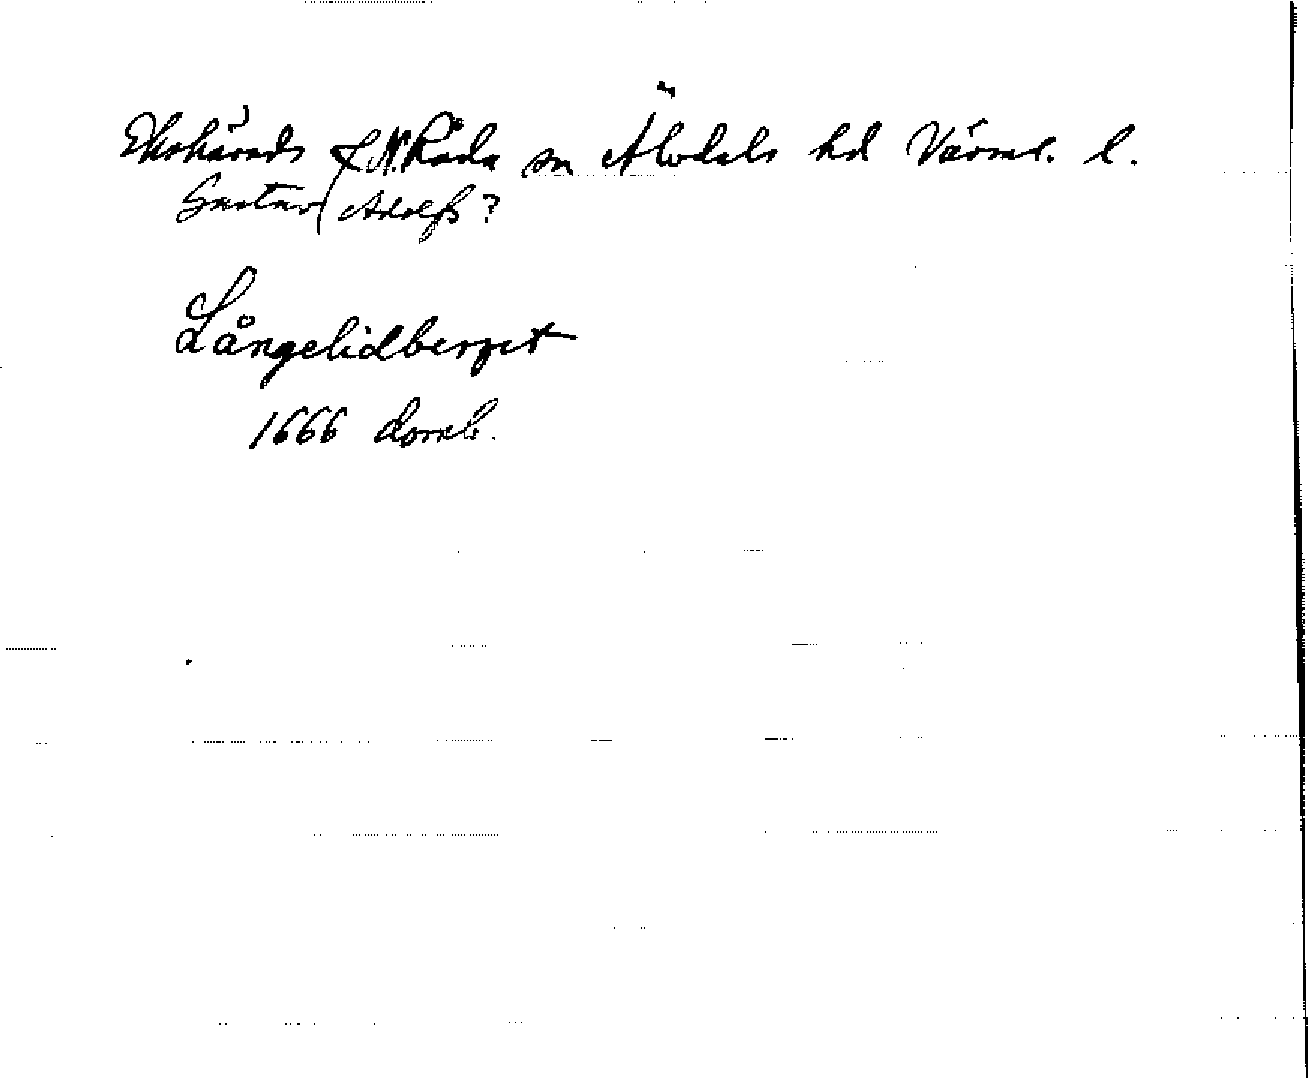 Ekshärads f. N. Råda sn Älvdals hd Värml. l.
Gustav Adolfs?
Långelidberget
1666 domb.